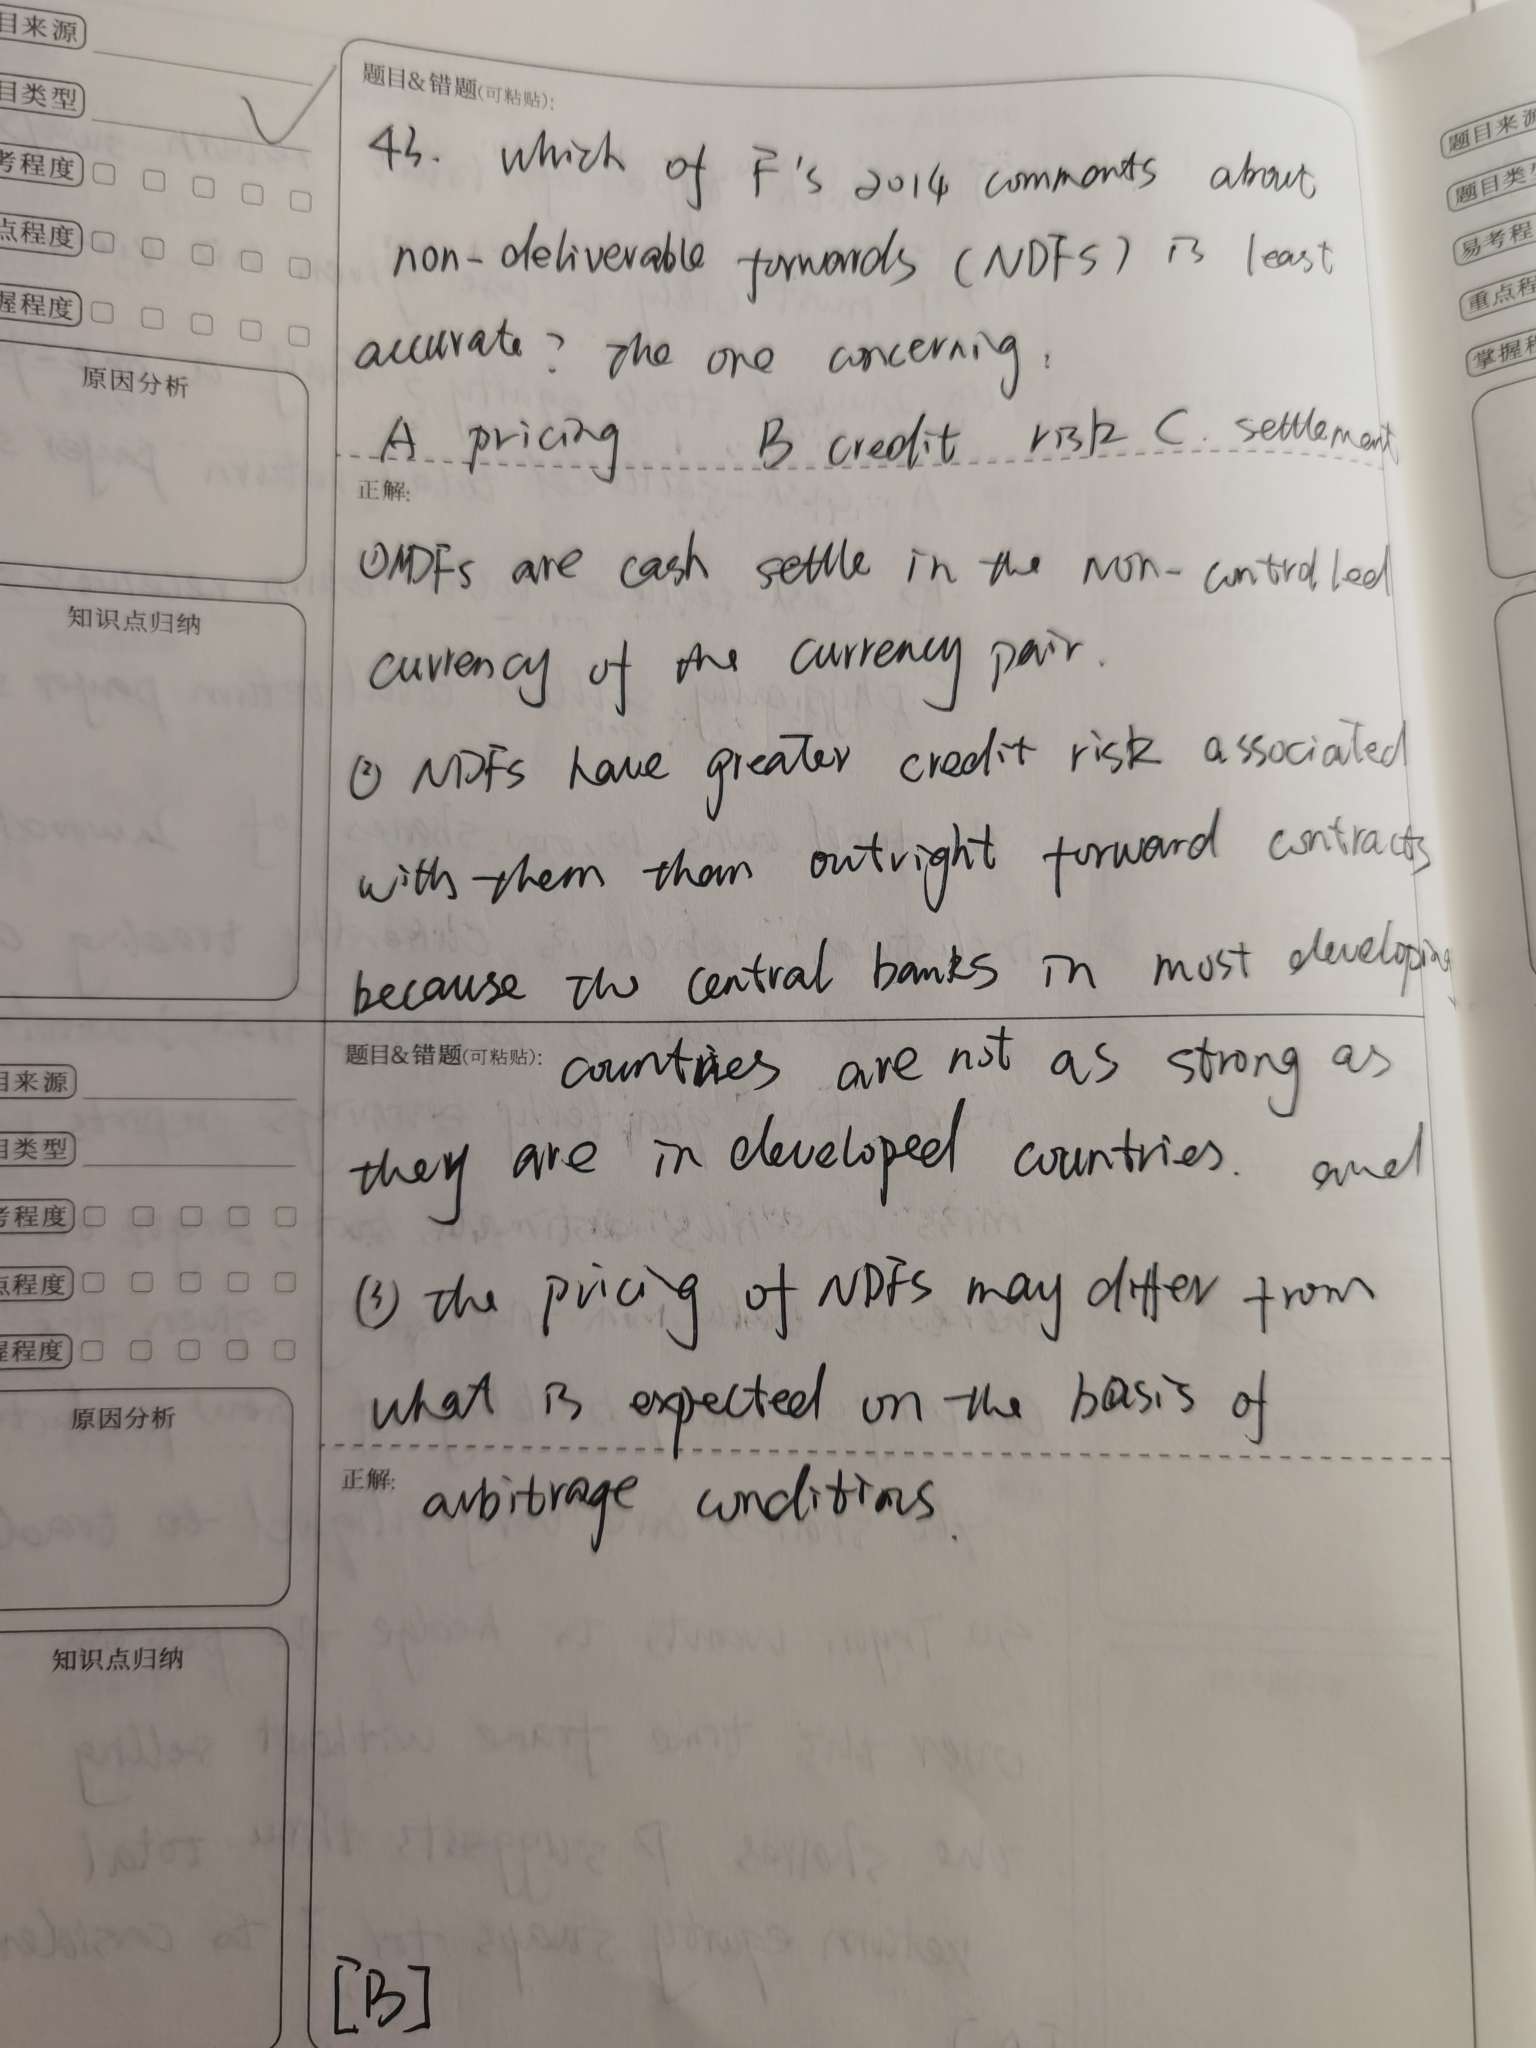 目来源
目类型
考程度
点程度
握程度
原因分析
知识点归纳
题目&错题(可粘贴):
43. which of F's 2014 comments about
non-deliverable forwards (NDFs) is least
accurate? The one concerning:
A pricing B credit risk C. settlement
正解:
① NDFs are cash settle in the non-controlled
currency of the currency pair.
② NDFs have greater credit risk associated
with them than outright forward contracts
because the central banks in most developing
题目&错题(可粘贴): countries are not as strong as
they are in developed countries. and
(3) the pricing of NDFs may differ from
what is expected on the basis of
正解: arbitrage conditions.
[B]
目来源
目类型
考程度
点程度
握程度
原因分析
知识点归纳
题目来源
题目类型
易考程
重点程
掌握程